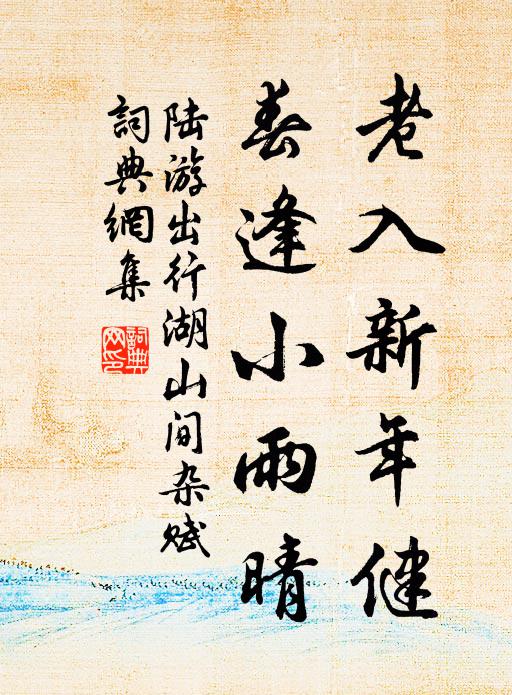 老入新年健
春逢小雨晴
陆游出行湖山间杂赋
詞典網集
詞典
网印